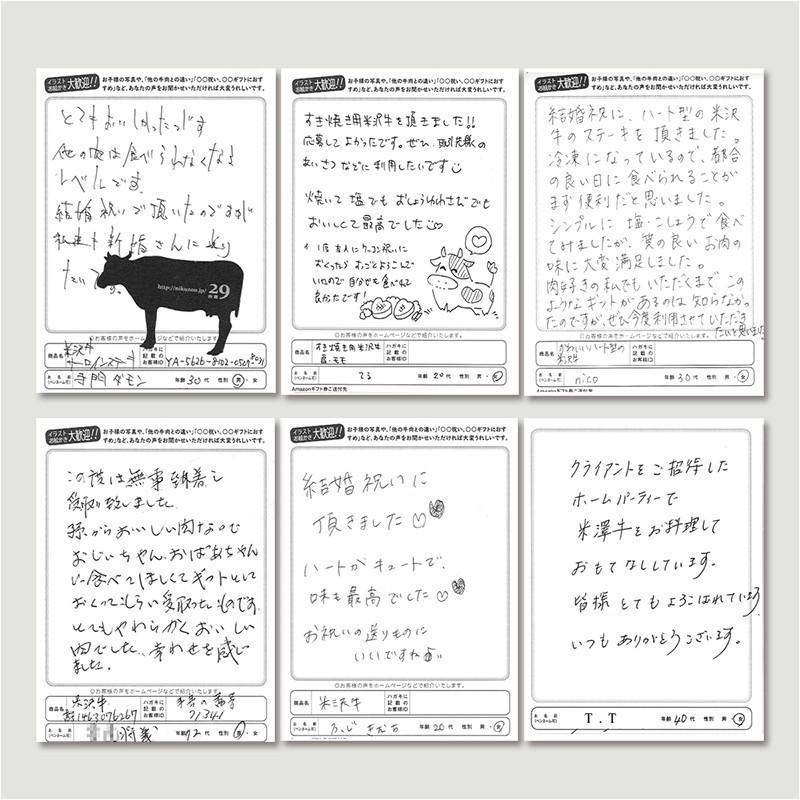 イラストお絵かき大歓迎!!
お子様の写真や、「他の牛肉との違い」「〇〇祝い、〇〇ギフトにおすすめ」など、あなたの声をお聞かせいただければ大変うれしいです。
とてもおいしかったです
他の肉は食べられなくなる
レベルです。
結婚祝いで頂いたのですが
私達も新婚さんに送り
たいです。
http://nikuzou.jp/ 29
◎お客様の声をホームページなどで紹介いたします。
商品名 米沢牛サーロインステーキ
ハガキに記載のお客様ID
お名前(ペンネーム可) 寺門ダモン 年齢 30代 性別 男・女
イラストお絵かき大歓迎!!
お子様の写真や、「他の牛肉との違い」「〇〇祝い、〇〇ギフトにおすすめ」など、あなたの声をお聞かせいただければ大変うれしいです。
すき焼き用米沢牛を頂きました!!
応募してよかったです。ぜひ、取引先様の
あいさつなどに利用したいです
焼いて塩でもおしょうゆわさびでも
おいしくて最高でした
おくったらすごくよろこんで
いたので自分も食べれて
良かったです!
◎お客様の声をホームページなどで紹介いたします。
商品名 すき焼き用米沢牛肩・モモ
ハガキに記載のお客様ID
お名前(ペンネーム可) てる 年齢 20代 性別 男・女
Amazonギフト券ご送付先
イラストお絵かき大歓迎!!
お子様の写真や、「他の牛肉との違い」「〇〇祝い、〇〇ギフトにおすすめ」など、あなたの声をお聞かせいただければ大変うれしいです。
結婚祝に、ハート型の米沢
牛のステーキを頂きました。
冷凍になっているので、都合
の良い日に食べられることが
まず便利だと思いました。
シンプルに塩・こしょうで食べ
てみましたが、質の良いお肉の
味に大変満足しました。
肉好きの私でもいただくまでこの
ようなギフトがあるのは知らなかっ
たのですが、ぜひ今度利用させていただき
たいと思いました。
◎お客様の声をホームページなどで紹介いたします。
商品名 かわいいハート型の米沢牛
ハガキに記載のお客様ID
お名前(ペンネーム可) nico 年齢 30代 性別 男・女
イラストお絵かき大歓迎!!
お子様の写真や、「他の牛肉との違い」「〇〇祝い、〇〇ギフトにおすすめ」など、あなたの声をお聞かせいただければ大変うれしいです。
この度は無事到着し
受取り致しました。
孫からおいしい肉なので
おじいちゃん、おばあちゃん
に食べてほしくてギフトとして
おくってもらい受取ったものです。
とてもやわらかくおいしい
肉でした。幸わせを感じ
ました。
◎お客様の声をホームページなどで紹介いたします。
商品名 米沢牛
ハガキに記載のお客様ID 71341
お名前(ペンネーム可) 年齢 72代 性別 男・女
イラストお絵かき大歓迎!!
お子様の写真や、「他の牛肉との違い」「〇〇祝い、〇〇ギフトにおすすめ」など、あなたの声をお聞かせいただければ大変うれしいです。
結婚祝いに
頂きました♡
ハートがキュートで、
味も最高でした♡
お祝いの送りものに
いいですね
◎お客様の声をホームページなどで紹介いたします。
商品名 米沢牛
ハガキに記載のお客様ID
お名前(ペンネーム可) 年齢 20代 性別 男・女
クライアントをご招待した
ホームパーティーで
米澤牛をお料理して
おもてなししています。
皆様とてもよろこばれています。
いつもありがとうございます。
お名前(ペンネーム可) T.T 年齢 40代 性別 男・女